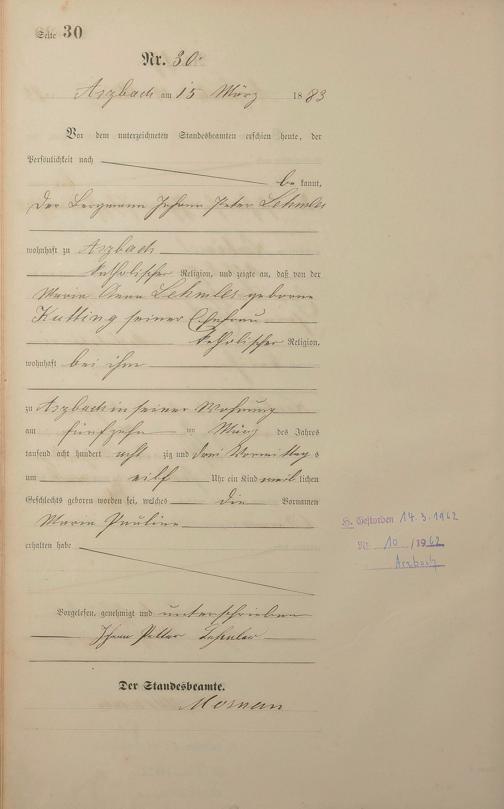 Seite 30
Nr. 30.
Arzbach am 15 März 1883
Vor dem unterzeichneten Standesbeamten erschien heute, der
Persönlichkeit nach
be kannt,
der Bergmann Johann Peter Lehmler
wohnhaft zu Arzbach
katholischer Religion, und zeigte an, daß von der
Maria Anna Lehmler geborene
Kutting seiner Ehefrau
katholischer Religion,
wohnhaft bei ihm
zu Arzbach in seiner Wohnung
am fünfzehn ten März des Jahres
tausend acht hundert acht zig und drei Vormittag s
um eilf Uhr ein Kind weib lichen
Geschlechts geboren worden sei, welches die Vornamen
Maria Pauline
erhalten habe
Vorgelesen, genehmigt und unterschrieben
Johann Petter Lehmler
Der Standesbeamte.
H. Gestorben 14.3.1962
Nr. 10 /1962
Arzbach